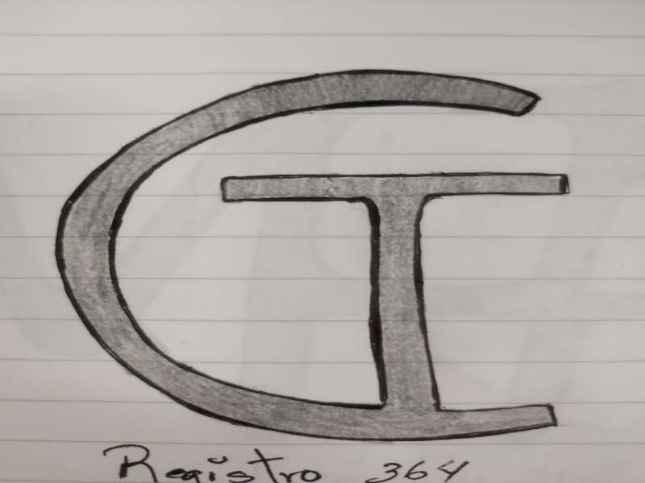 CT
Registro 364